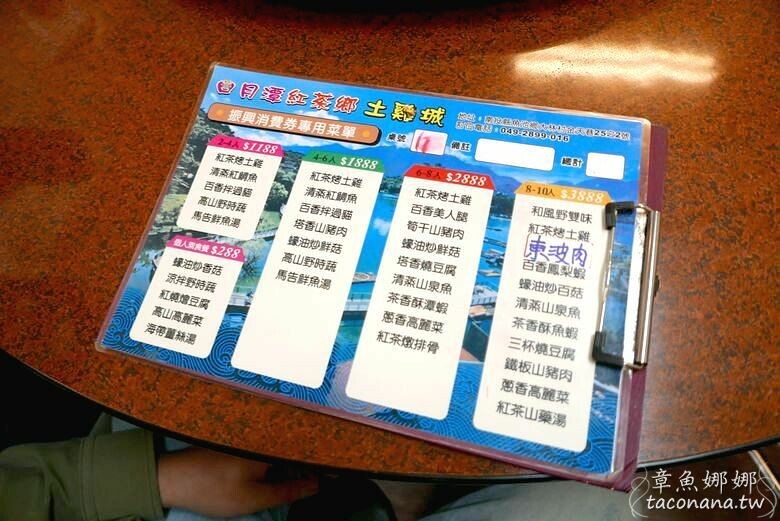 日月潭紅茶鄉 土雞城
地址:南投縣魚池鄉大林村金天巷25之2號
訂位電話:049-2899016
振興消費券專用菜單
桌號
備註
總計
2-4人 $1188
紅茶烤土雞
清蒸紅鯛魚
百香拌過貓
高山野時蔬
馬告鮮魚湯
個人蔬食餐 $288
蠔油炒香菇
涼拌野時蔬
紅燒燴豆腐
高山高麗菜
海帶薑絲湯
4-6人 $1888
紅茶烤土雞
清蒸紅鯛魚
百香拌過貓
塔香山豬肉
蠔油炒鮮菇
高山野時蔬
馬告鮮魚湯
6-8人 $2888
紅茶烤土雞
百香美人腿
筍干山豬肉
蠔油炒鮮菇
塔香燒豆腐
清蒸山泉魚
茶香酥潭蝦
蔥香高麗菜
紅茶燉排骨
8-10人 $3888
和風野雙味
紅茶烤土雞
東波肉
百香鳳梨蝦
蠔油炒百菇
清蒸山泉魚
茶香酥魚蝦
三杯燒豆腐
鐵板山豬肉
蔥香高麗菜
紅茶山藥湯
章魚娜娜
taconana.tw